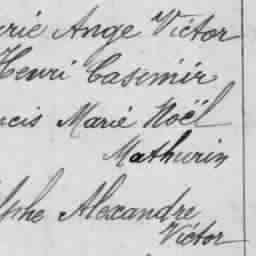 rie Ange Victor
Henri Casimir
ncis Marie Noël
Mathurin
lphe Alexandre
Victor